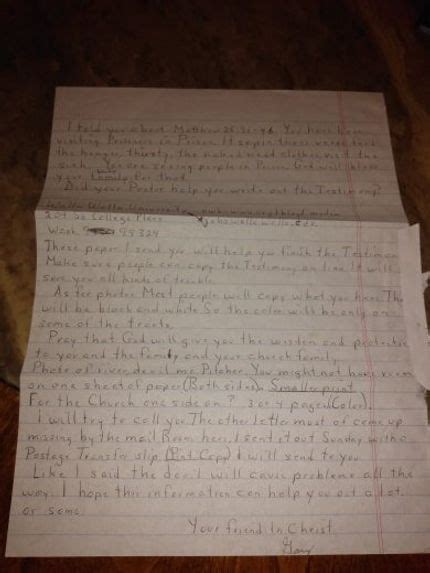 I told you about Matthew 25:31-46. You have been
visiting Prisoners in Prison. It says in these verses feed
the hunger, thirsty, the naked need clothes, visit the
sick, You are seeing people in Prison. God will bless
your family for that.
Did your Pastor help you write out the Testimony?
Walla Walla University
204 So College Place
Wash 99324
These paper I send you will help you finish the Testimon
Make sure people can copy the Testimony on line. It will
save you all kinds of trouble.
As for photos Most people will copy what you have. Th
will be black and white So the color will be only on
some of the tracts.
Pray that God will give you the wisdom and protectio
to you and the family and your church family.
Photo of river, devil me Pitcher. You might not have room
on one sheet of paper (Both sides). Smaller print
For the Church one side on? 3 or 4 pages (Color).
I will try to call you. The other letter most of come up
missing by the mail Room here. I sent it out Sunday with a
Postage Transfer slip. (Pink Copy) I will send to you
Like I said the devil will cause problems all the
way. I hope this information can help you out a lot
or some.
Your friend In Christ
Gary